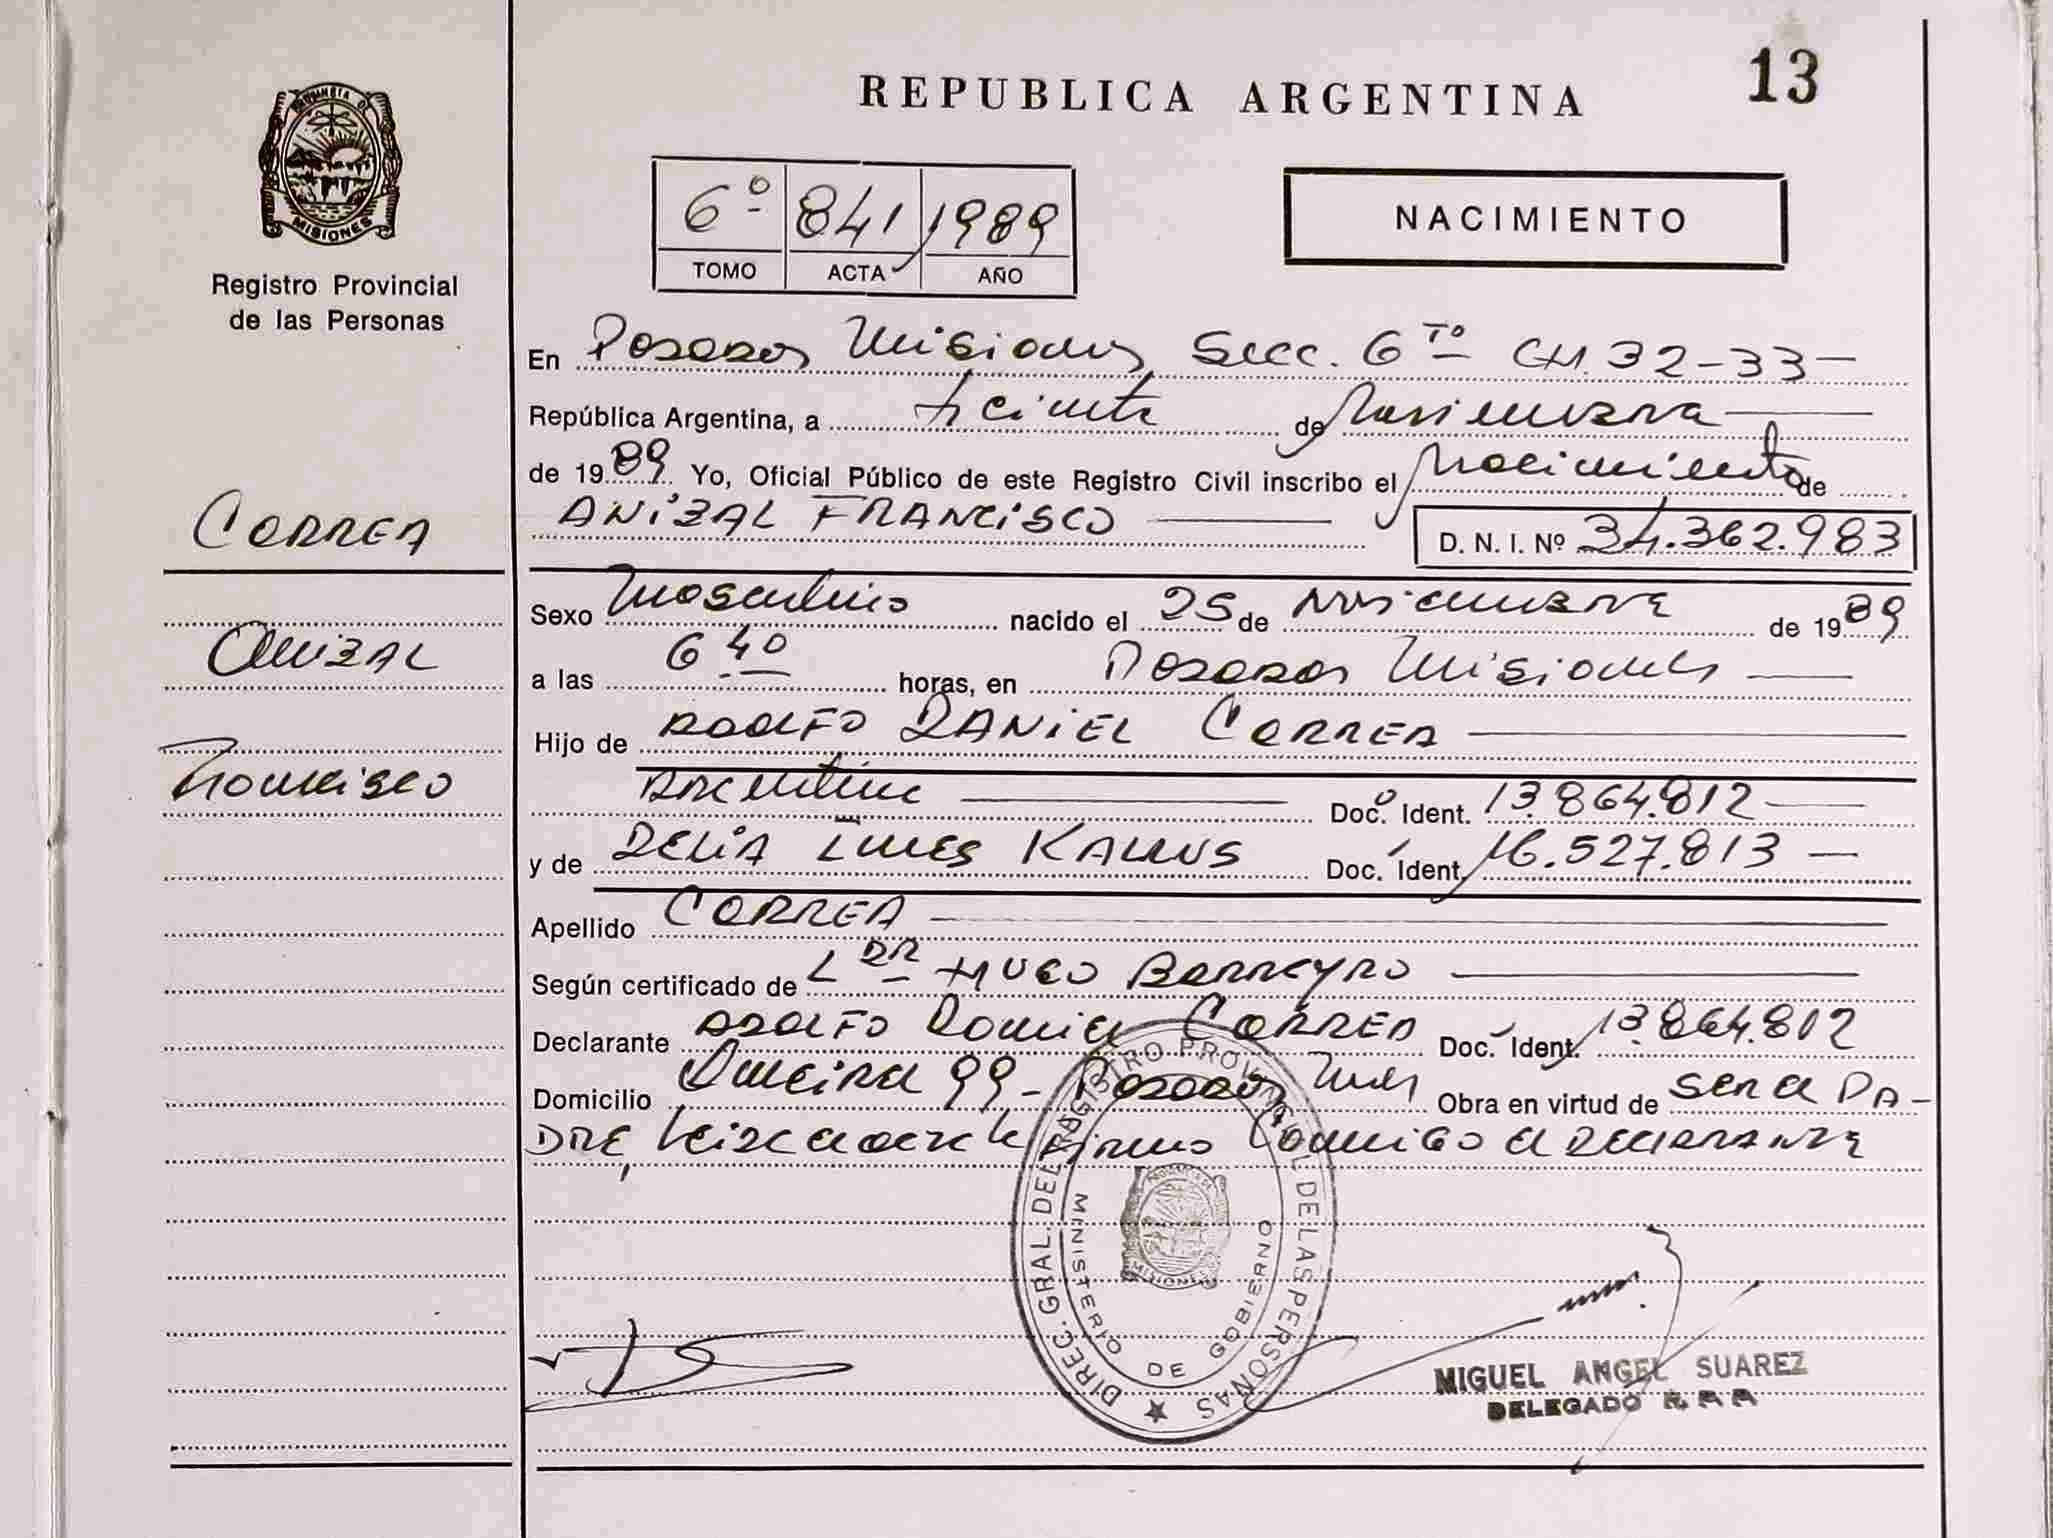 PROVINCIA DE
MISIONES
Registro Provincial
de las Personas
CORREA
Anibal
Francisco
REPUBLICA ARGENTINA
13
6º 841 1989
TOMO ACTA AÑO
NACIMIENTO
En Posadas Misiones Secc. 6to CH. 32-33
República Argentina, a treinta de Noviembre
de 1989 Yo, Oficial Público de este Registro Civil inscribo el Nacimiento de
ANIBAL FRANCISCO D. N. I. Nº 34.362.983
Sexo Masculino nacido el 25 de Noviembre de 1989
a las 6 40 horas, en Posadas Misiones
Hijo de ADOLFO DANIEL CORREA
Argentino Doc. Ident. 13.864.812
y de DELIA INES Doc. Ident. 16.527.813
Apellido CORREA
Según certificado de L DR HUGO BARREYRO
Declarante ADOLFO Daniel CORREA Doc. Ident. 13.864.812
Domicilio 99 - Posadas Mnes Obra en virtud de ser el PA-
DRE, firma conmigo el DECLARANTE
DIREC. GRAL. DEL REGISTRO PROVINCIAL DE LAS PERSONAS
MINISTERIO DE GOBIERNO
MISIONES
MIGUEL ANGEL SUAREZ
DELEGADO